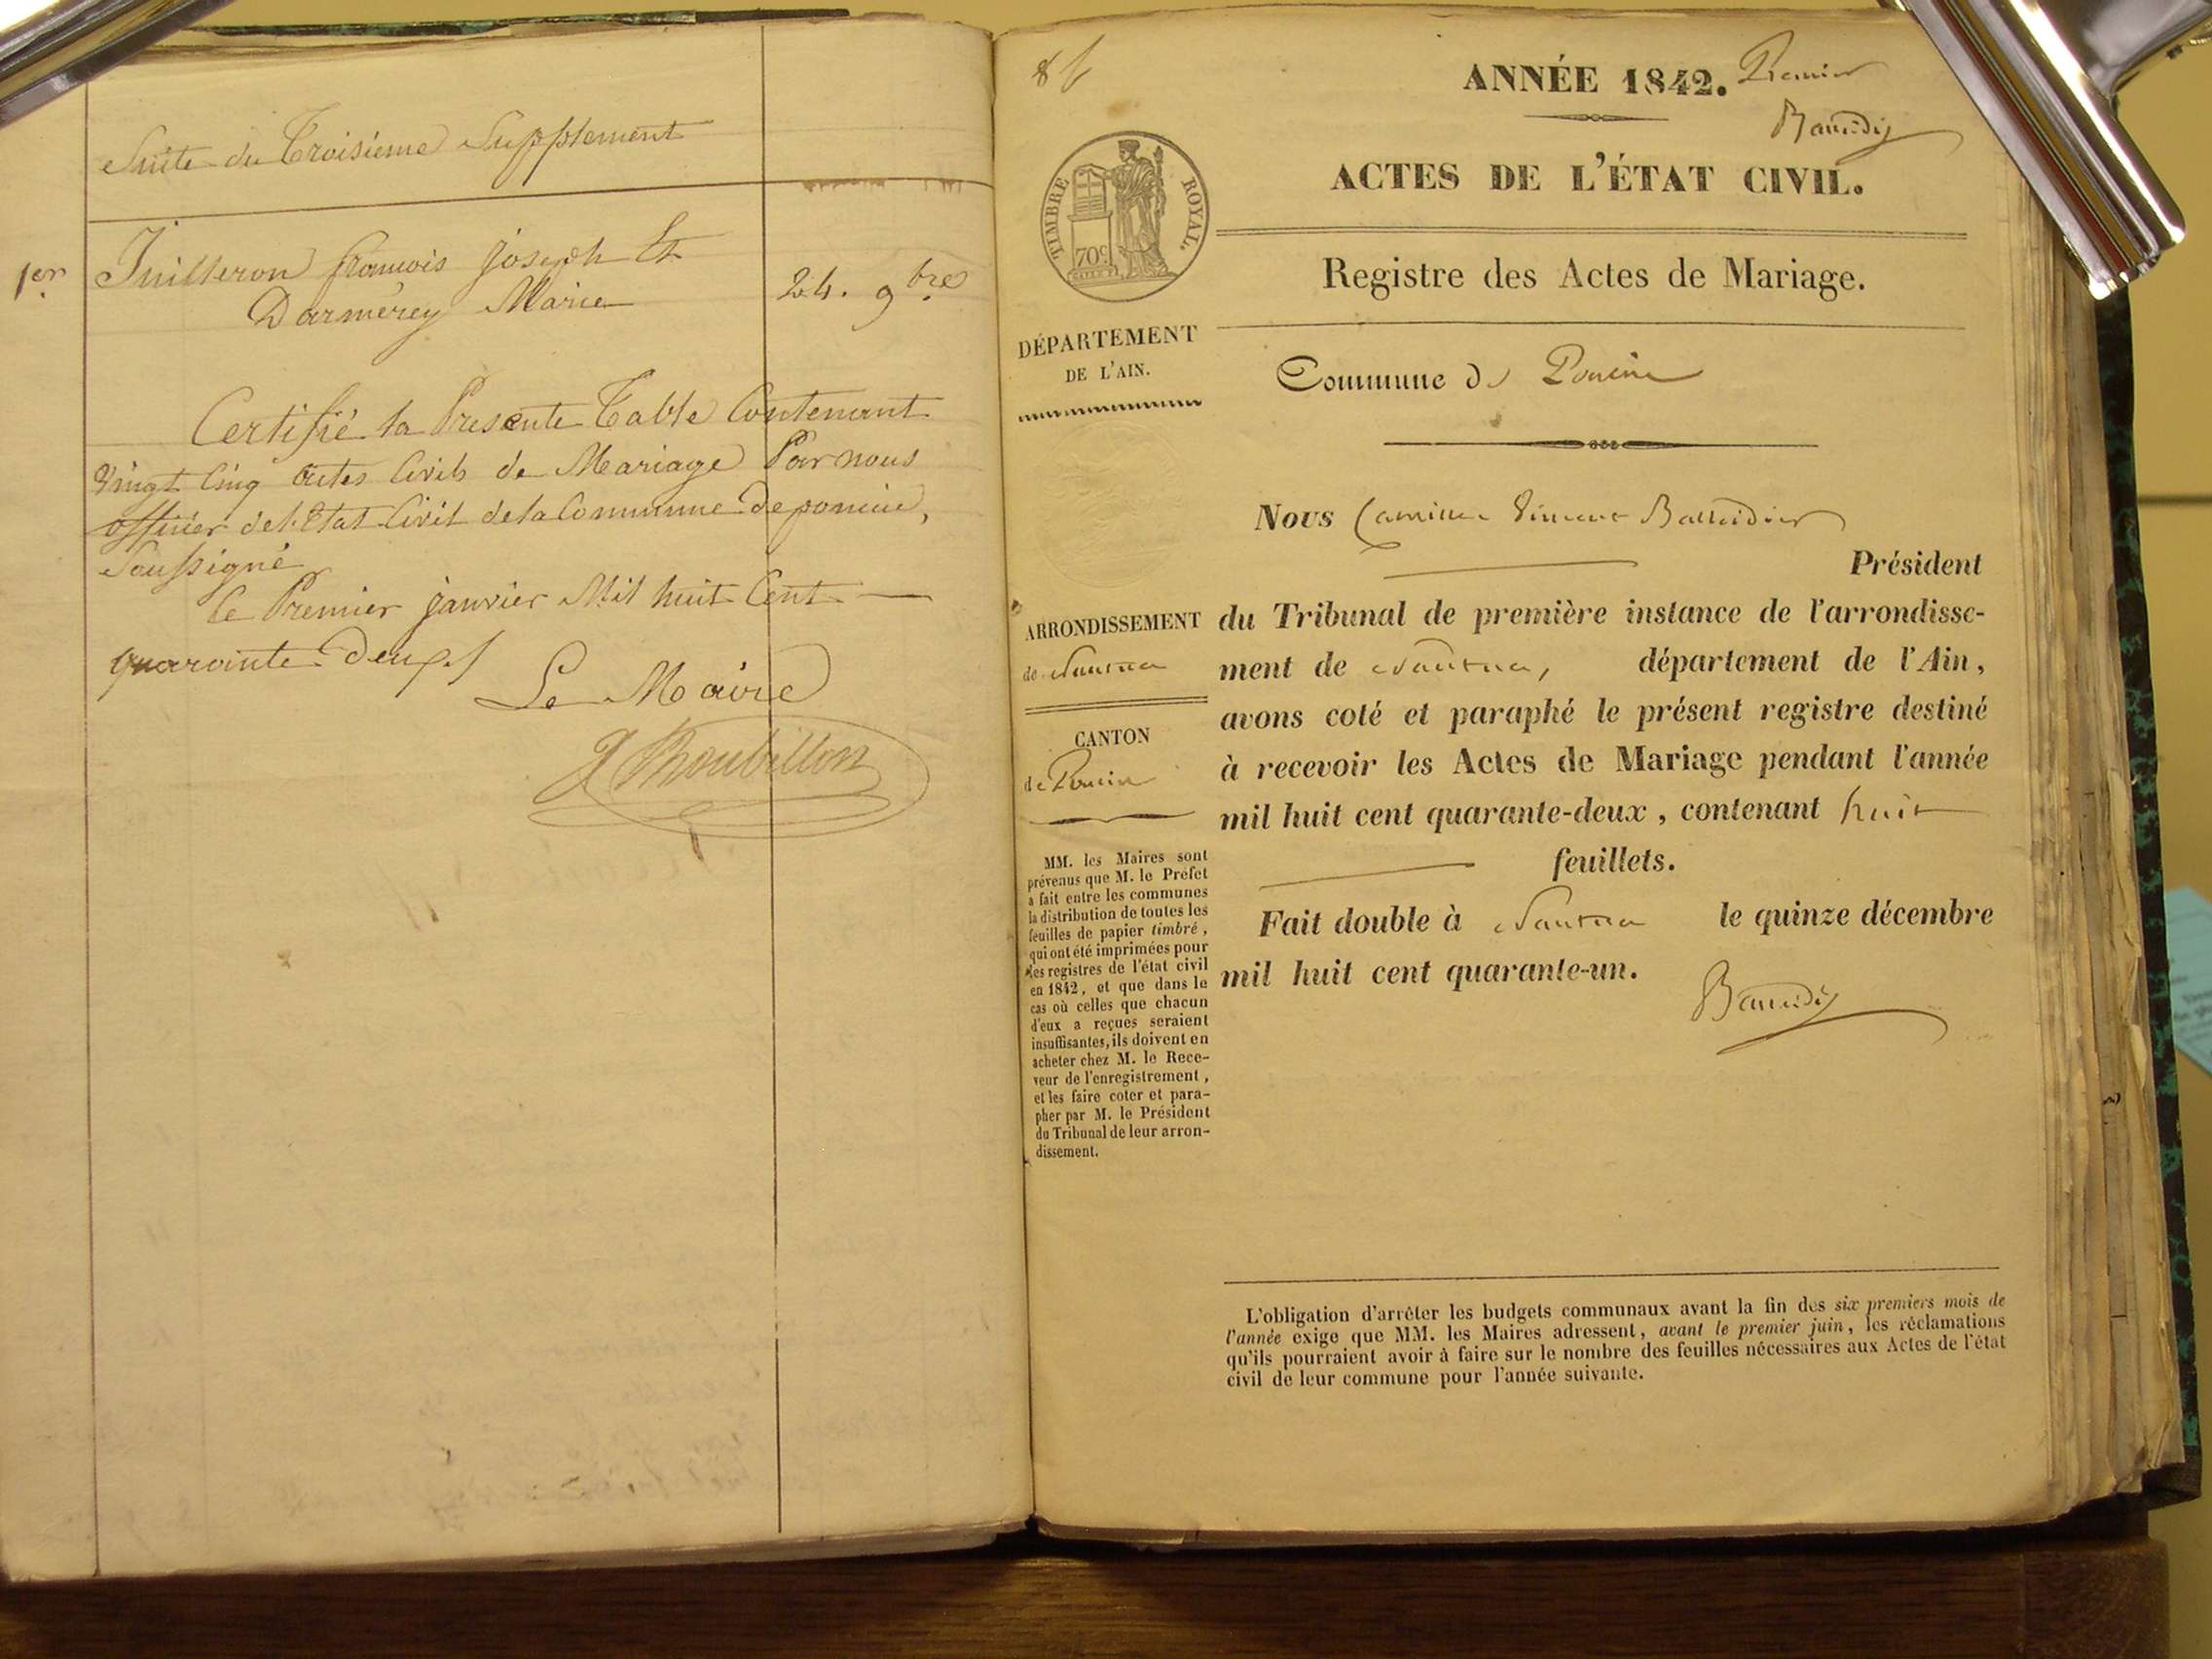 Suite du Troisieme Supplement
1er
Juilleron francois joseph Et
Darmérey Marie
24. 9bre
Certifié la Presente Table Contenant
vingt Cinq actes Civils de Mariage Par nous
officier de l'Etat Civil de la Commune de poncin,
Soussigné
le Premier janvier Mil huit Cent
quarante Deux
Le Maire
ANNÉE 1842.
Premier
ACTES DE L'ÉTAT CIVIL.
TIMBRE ROYAL.
70c
Registre des Actes de Mariage.
DÉPARTEMENT
DE L'AIN.
Commune de Poncin
Nous Camille Vincent
Président
du Tribunal de première instance de l'arrondisse-
ment de Nantua, département de l'Ain,
avons coté et paraphé le présent registre destiné
à recevoir les Actes de Mariage pendant l'année
mil huit cent quarante-deux, contenant huit
feuillets.
Fait double à Nantua le quinze décembre
mil huit cent quarante-un.
ARRONDISSEMENT
de Nantua
CANTON
de Poncin
MM. les Maires sont
prévenus que M. le Préfet
a fait entre les communes
la distribution de toutes les
feuilles de papier timbré,
qui ont été imprimées pour
les registres de l'état civil
en 1842, et que dans le
cas où celles que chacun
d'eux a reçues seraient
insuffisantes, ils doivent en
acheter chez M. le Rece-
veur de l'enregistrement,
et les faire coter et para-
pher par M. le Président
du Tribunal de leur arron-
dissement.
L'obligation d'arrêter les budgets communaux avant la fin des six premiers mois de
l'année exige que MM. les Maires adressent, avant le premier juin, les réclamations
qu'ils pourraient avoir à faire sur le nombre des feuilles nécessaires aux Actes de l'état
civil de leur commune pour l'année suivante.